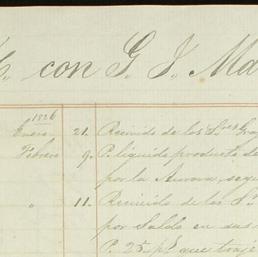 C. con G. J. Ma
1826
Enero 21. Recivido de los S.res Gra
Febrero 9. P. liquido producto de
por la Aurora, segu
" 11. Recivido de los S.
por saldo en sus
P. 25. p.E que traje